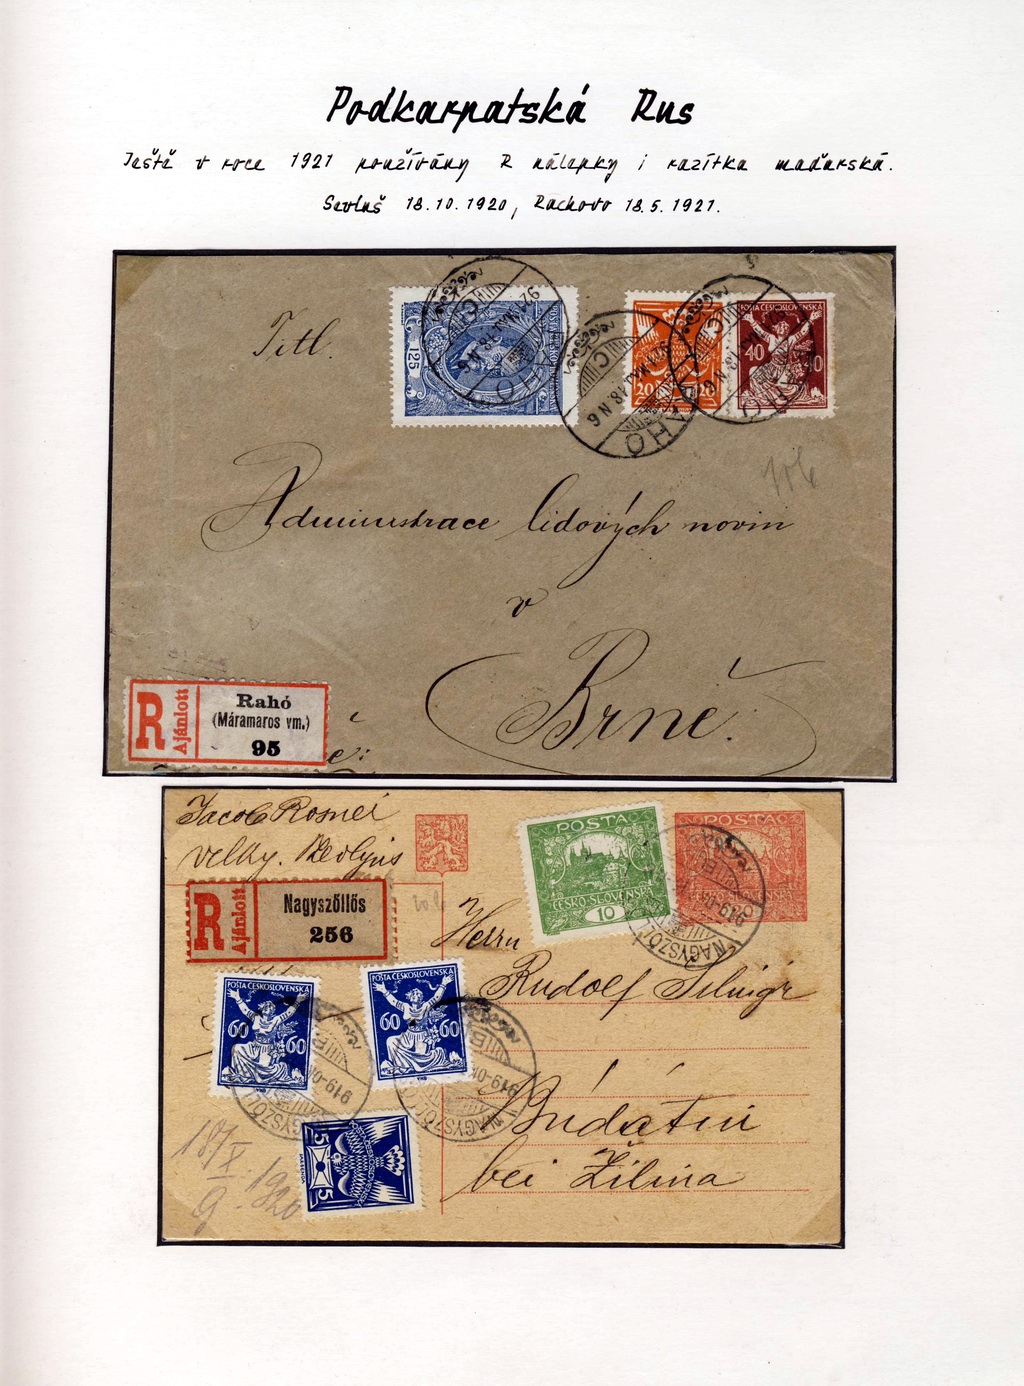 Podkarpatská Rus
Ještě v roce 1921 používány R nálepky i razítka maďarská.
Sevluš 18.10.1920, Rachovo 18.5.1921.
125
20 20
POSTA ČESKOSLOVENSKÁ
40 40
RAHÓ
921 MAJ. 18. N 6
C
Titl.
Administrace lidových novin
v
Brně.
R
Ajánlott
Rahó
(Máramaros vm.)
95
Jacob
Velky.
R
Ajánlott
Nagyszőllős
256
POSTA
ČESKO-SLOVENSKÁ
10
POSTA
ČESKO-SLOVENSKÁ
NAGYSZŐL
919
Herrn
Rudolf
POSTA ČESKOSLOVENSKÁ
60 60
POSTA ČESKOSLOVENSKÁ
60 60
NAGYSZŐL
919
B
Budatin
bei Žilina
5 5
18/X.
1920